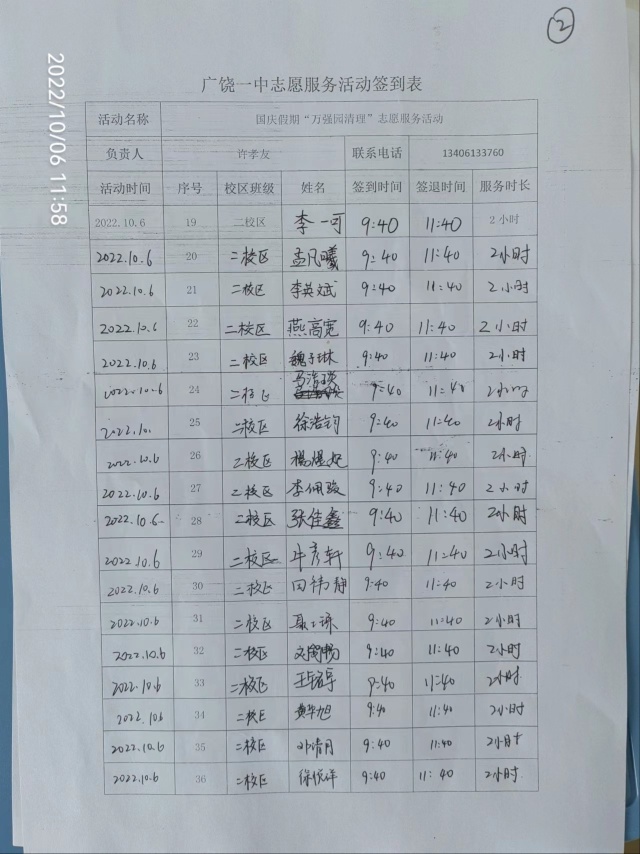 ②
2022/10/06 11:58
广饶一中志愿服务活动签到表
活动名称 国庆假期“万强园清理”志愿服务活动
负责人 许孝友 联系电话 13406133760
活动时间 序号 校区班级 姓名 签到时间 签退时间 服务时长
2022.10.6 19 二校区 李一可 9:40 11:40 2小时
2022.10.6 20 二校区 孟凡曦 9:40 11:40 2小时
2022.10.6 21 二校区 李英斌 9:40 11:40 2小时
2022.10.6 22 二校区 燕高宽 9:40 11:40 2小时
2022.10.6 23 二校区 魏子琳 9:40 11:40 2小时
2022.10.6 24 二校区 9:40 11:40 2小时
2022.10. 25 二校区 徐浩钧 9:40 11:40 2小时
2022.10.6 26 二校区 9:40 11:40 2小时
2022.10.6 27 二校区 李佩骏 9:40 11:40 2小时
2022.10.6 28 二校区 张佳鑫 9:40 11:40 2小时
2022.10.6 29 二校区 牛彦轩 9:40 11:40 2小时
2022.10.6 30 二校区 田祎静 9:40 11:40 2小时
2022.10.6 31 二校区 9:40 11:40 2小时
2022.10.6 32 二校区 9:40 11:40 2小时
2022.10.6 33 二校区 9:40 11:40 2小时
2022.10.6 34 二校区 9:40 11:40 2小时
2022.10.6 35 二校区 邓清月 9:40 11:40 2小时
2022.10.6 36 二校区 徐悦洋 9:40 11:40 2小时